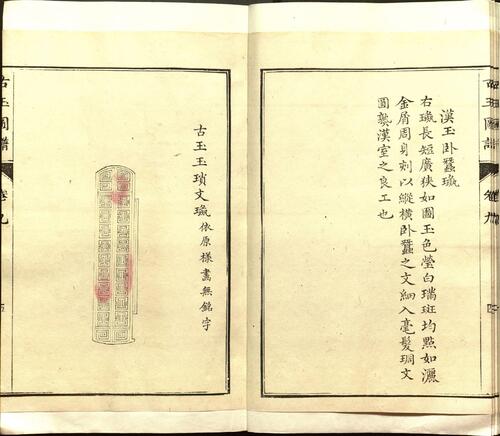 漢玉臥蠶璏
右璏長短廣狹如圖玉色瑩白璊斑均點如灑
金屑周身刻以縱橫臥蠶之文細入毫髮琱文
圓熟漢室之良工也
古玉圖譜
卷九
古玉玉瑣文璏依原樣畫無銘字
古玉圖譜
卷九
五